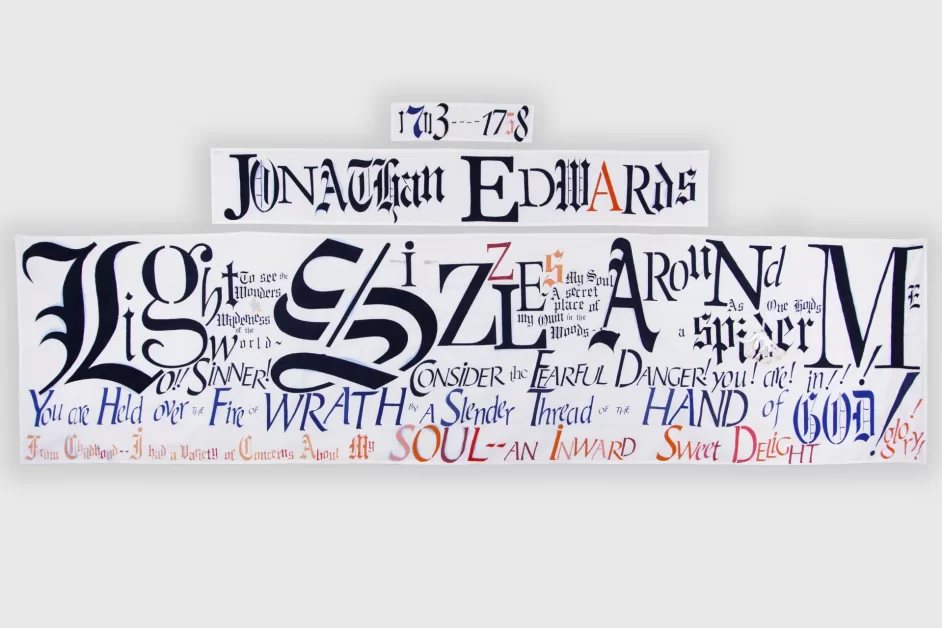 1703----1758
JONATHan EDWARds
Light SizzLEs ARounNd ME
To see the
Wonders
Wildeness
of the
World~
My Soul
A secret
place of
my Own in the
Woods~
As One Holds
a spider
O!! SINNER! CONSIDER the FEARFUL DANGER! you! are! in!!
You are Held over THE Fire OF WRATH BY A Slender Thread OF THE HAND of GOD!
From Childhood--I had a Variety of Concerns About My SOUL--AN INWARD Sweet DELIGHT
glory!!